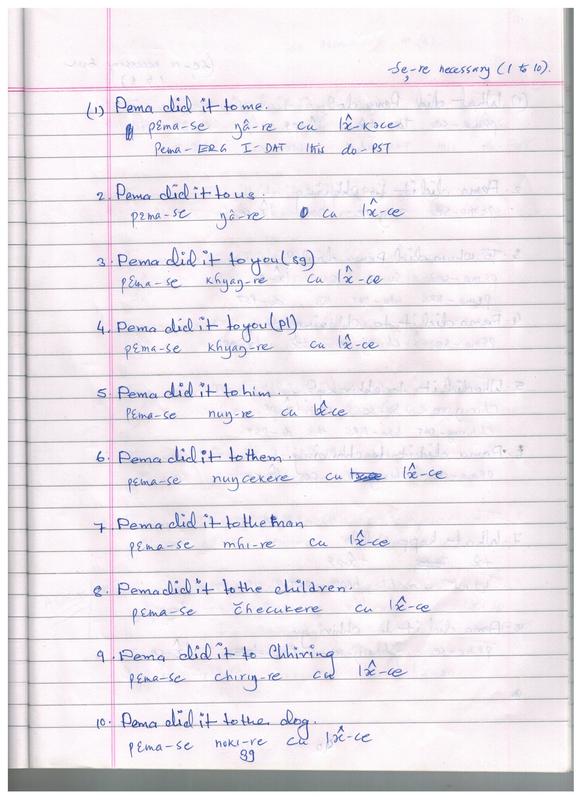 se, -re necessary (1 to 10).
(1) Pema did it to me.
pɛma-se ŋâ-re cu lx̂-kəce
Pema-ERG I-DAT this do-PST
2. Pema did it to us.
pɛma-se ŋâ-re cu lx̂-ce
3. Pema did it to you (sg)
pɛma-se khyaŋ-re cu lx̂-ce
4. Pema did it to you (pl)
pɛma-se khyaŋ-re cu lx̂-ce
5. Pema did it to him.
pɛma-se nuŋ-re cu lx̂-ce
6. Pema did it to them.
pɛma-se nuŋcekere cu lx̂-ce
7. Pema did it to the man
pɛma-se mhi-re cu lx̂-ce
8. Pema did it to the children.
pɛma-se čhecukere cu lx̂-ce
9. Pema did it to Chhiring
pɛma-se chiriŋ-re cu lx̂-ce
10. Pema did it to the dog.
pɛma-se noki-re cu lx̂-ce
sg